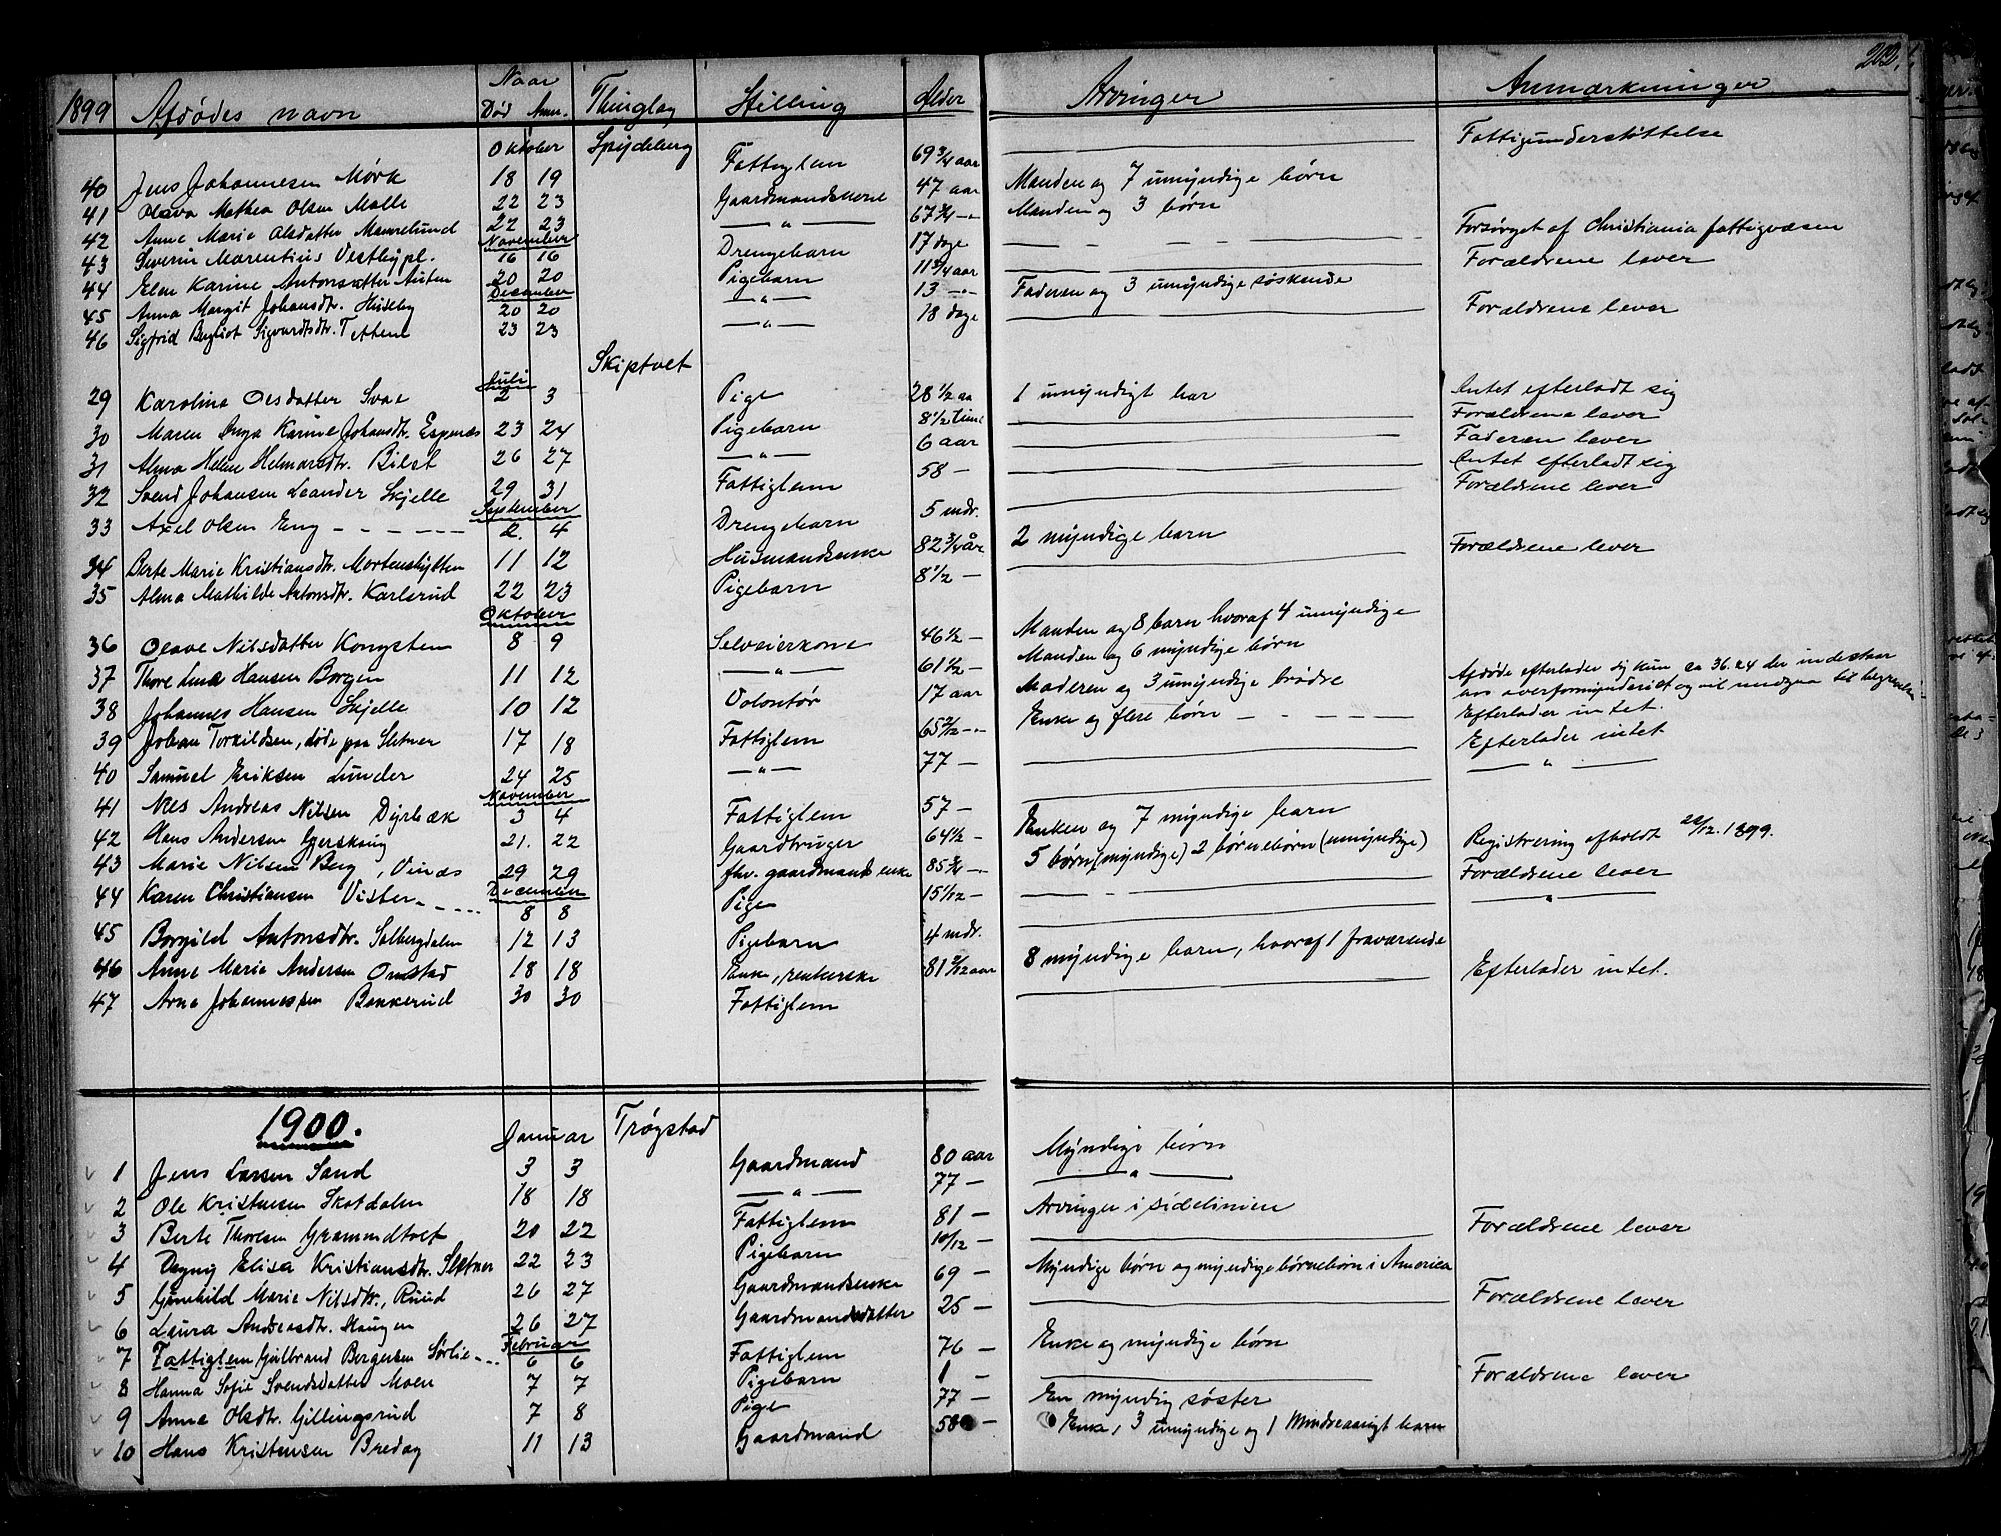 202.
1899 Afdødes navn Naar Død Anm. Thinglag Stilling Alder Arvinger Anmærkninger
Oktober Spydeberg
40 Jens Johannesen Mørk 18 19 Fattiglem 69 3/4 aar Fattigunderstøttelse
41 Olava Mathea Olsen Malle 22 23 Gaardmandskone 47 aar Manden og 7 umyndige børn
42 Anne Marie Olsdatter Maurelund 22 23 — " — 67 3/4 -"- Manden og 3 børn
November
43 Severin Marentius Vestbypl. 16 16 Drengebarn 17 dage Forsørget af Christiania fattigvæsen
44 Elen Karine Antonsdatter Auten 20 20 Pigebarn 11 3/4 aar Forældrene lever
December
45 Anna Margit Johansdtr. Huseby 20 20 — " — 13 -"- Faderen og 3 umyndige søskende
46 Sigfrid Bergliot Sigvardtsdtr. Tetten 23 23 — " — 18 dage Forældrene lever
Skiptvet
Juli
29 Karoline Olsdatter Svae 2 3 Pige 28 1/2 aa 1 umyndigt bar Intet efterladt sig
30 Maren Inga Karine Johansdtr. Espenæs 23 24 Pigebarn 8 1/2 time Forældrene lever
31 Alma Helene Helmersdtr. Bilet 26 27 — " — 6 aar Faderen lever
32 Svend Johansen Leander Skjelle 29 31 Fattiglem 58 - Intet efterladt sig
September
33 Axel Olsen Eng - - - - 2. 4 Drengebarn 5 mdr. Forældrene lever
34 Berte Marie Kristiansdtr. Mortenshytten 11 12 Husmandsenke 82 3/4 år 2 myndige barn
35 Alma Mathilde Antonsdtr. Karlsrud 22 23 Pigebarn 8 1/2 - Forældrene lever
Oktober
36 Olave Nilsdatter Kongsten 8 9 Selveierkone 46 1/2 - Manden og 8 barn hvoraf 4 umyndige
37 Thore Lina Hansen Borgen 11 12 — " — 61 1/2 - Manden og 6 myndige børn
38 Johannes Hansen Skjelle 10 12 Volontør 17 aar Moderen og 3 umyndige brødre Afdøde efterlader sig kun ca 36.24 der indestaar
hos overformynderiet og vil medgaa til begravelse
39 Johan Torkildsen, døde paa Sletner 17 18 Fattiglem Enke og flere børn - - - - Efterlader intet.
40 Samuel Eriksen Lunder 24 25 — " — 77 - Efterlader intet
November
41 Nils Andreas Nilsen Dyrbæk 3 4 Fattiglem 57 - — " —
42 Hans Andersen Gjerskaug 21. 22 Gaardbruger 64 1/2 - Enken og 7 myndige barn
43 Marie Nilsen Berg, Vinæs 29 29 fhv. gaardmands enke 85 3/4 - 5 børn (myndige) 2 børnebørn (umyndige) Registrering afholdt 22/12.1899.
December
44 Karen Christiansen Vister - - - 8 8 Pige 15 1/12 - Forældrene lever
45 Borgild Antonsdtr. Solbergdalen 12 13 Pigebarn 4 mdr. "
46 Anne Marie Andersen Onstad 18 18 Enke, renterske 81 2/12 aar 8 myndige barn, hvoraf 1 fraværende
47 Arne Johannessen Bakkerud 30 30 Fattiglem Efterlader intet.
1900. Januar Trøgstad
1 Jens Larsen Sand 3 3 Gaardmand 80 aar Myndige børn
2 Ole Kristensen Skotdalen 18 18 — " — 77 - — " —
3 Berte Thoresen Grammdtvet 20 22 Fattiglem 81 - Arvinger i sidelinien
4 Dagny Elise Kristiansdtr. Sletner 22 23 Pigebarn 10/12 - Forældrene lever
5 Gunhild Marie Nilsdtr., Ruud 26 27 Gaardmandsenke 69 - Myndige børn og myndige børnebørn i America
6 Laura Andreasdtr. Haugen 26 27 Gaardmandsdatter 25 - Forældrene lever
Februar
7 Fattiglem Gulbrand Bergersen Sørlie - - 6 6 Fattiglem 76 - Enke og myndige børn
8 Hanna Sofie Svendsdatter Moen 7 7 Pigebarn 1 - Forældrene lever
9 Anne Olsdtr. Gillingsrud 7 8 Pige 77 - En myndig søster
10 Hans Kristensen Bredag 11 13 Gaardmand 58 - Enke, 3 umyndige og 1 mindreaarigt barn